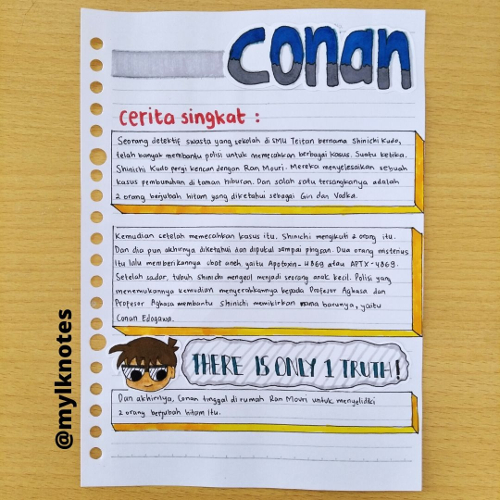 conan
cerita singkat :
Seorang detektif swasta yang sekolah di SMU Teitan bernama Shinichi Kudo,
telah banyak membantu polisi untuk memecahkan berbagai kasus. Suatu ketika.
Shinichi Kudo pergi kencan dengan Ran Mouri. Mereka menyelesaikan sebuah
kasus pembunuhan di taman hiburan. Dan salah satu tersangkanya adalah
2 orang berjubah hitam yang diketahui sebagai Gin dan Vodka.
Kemudian setelah memecahkan kasus itu. Shinichi mengikuti 2 orang itu.
Dan dia pun akhirnya diketahui dan dipukul sampai pingsan. Dua orang misterius
itu lalu memberikannya obat aneh yaitu Apotoxin-4869 atau APTX-4869.
Setelah sadar, tubuh Shinichi mengecil menjadi seorang anak kecil. Polisi yang
menemukannya kemudian menyerahkannya kepada Profesor Aghasa dan
Profesor Aghasa membantu Shinichi memikirkan nama barunya, yaitu
Conan Edogawa.
THERE IS ONLY 1 TRUTH!
Dan akhirnya, Conan tinggal di rumah Ran Mouri untuk menyelidiki
2 orang berjubah hitam itu.
@mylknotes